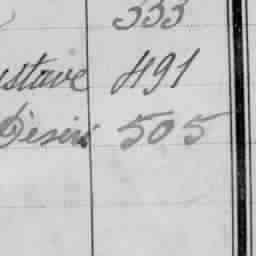 333
ustave 491
Désiré 505